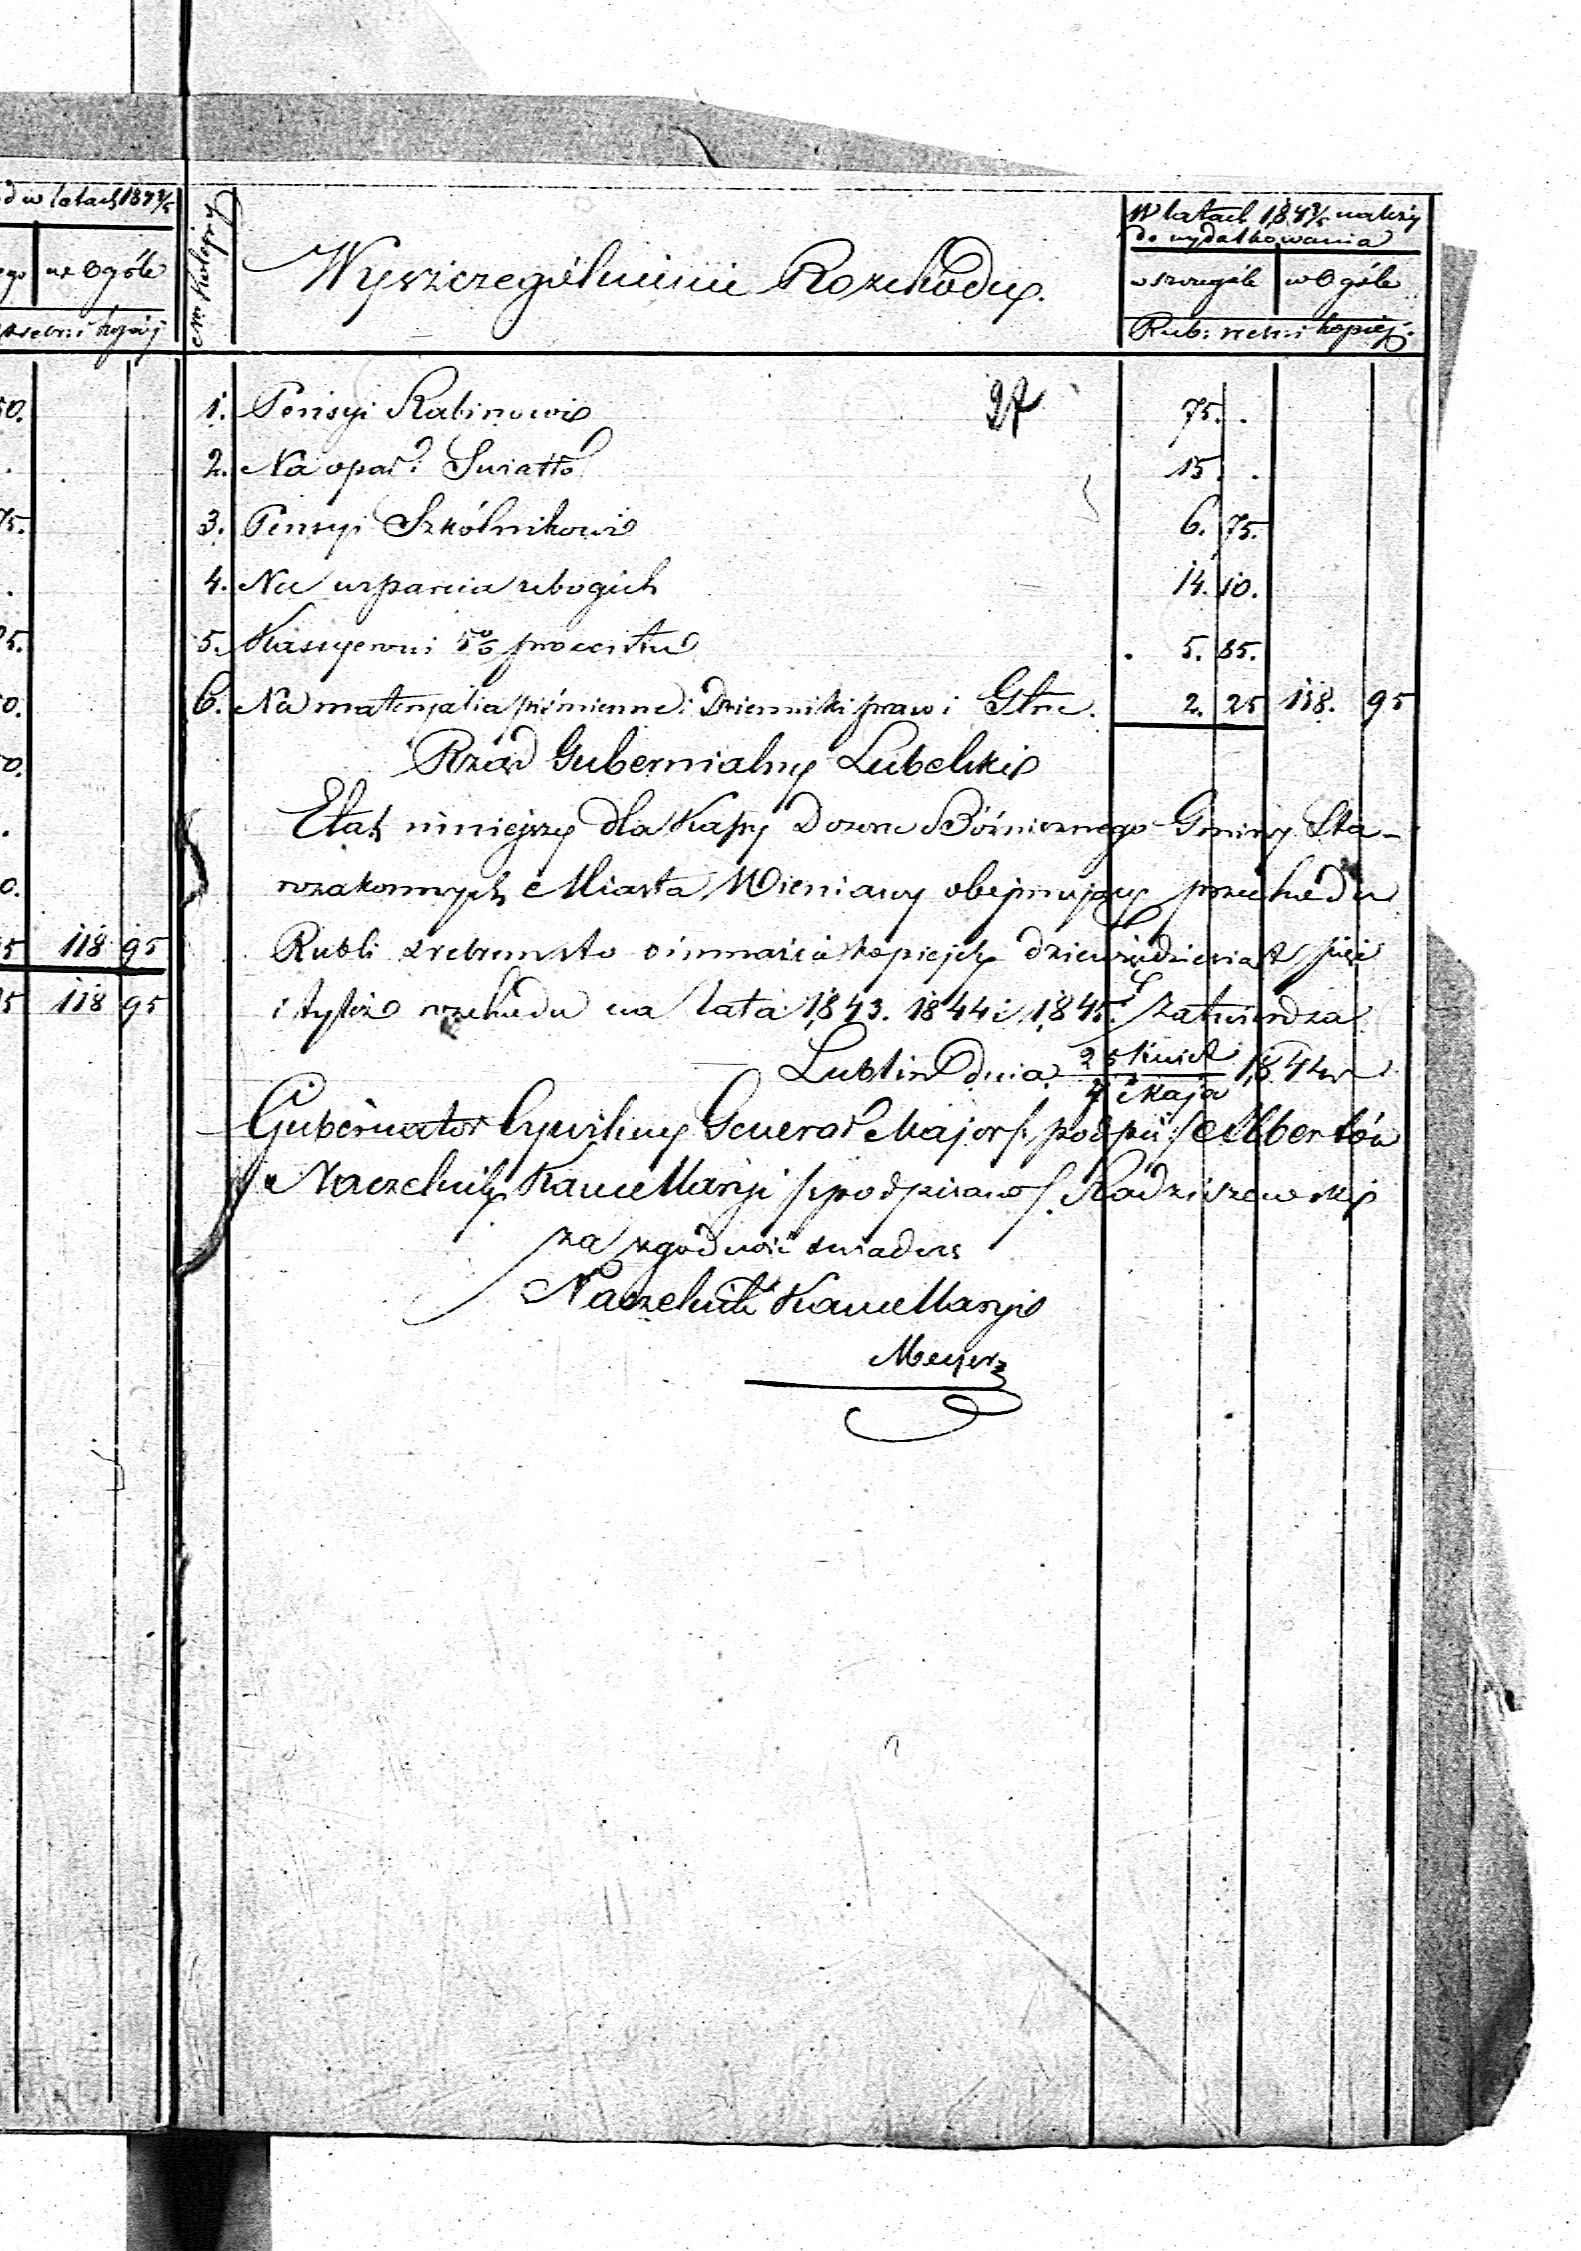 d w latach 184 3/5
ego | w Ogóle
srebrn: kopiej
50.
75.
118 95
118 95
Nr Kolejny
Wyszczególnienie Rozchodu.
W latach 184 3/5 należy
do wydatkowania
w szczególe | w Ogóle
Rub: srebr: i kopiej:
27
1. Pensyi Rabinowi 75. .
2. Na opał i Swiatło 15. .
3. Pensyi Szkólnikowi 6. 75.
4. Na wsparcia ubogich 14. 10.
5. Kassyerowi 5% procentu 5. 85.
6. Na materyalia piśmienne i Dzienniki praw i 2. 25 118. 95
Rząd Gubernialny Lubelski
Etat niniejszy dla Kassy Dozoru Bóżniczego Gminy Sta-
rozakonnych Miasta Wieniawy obejmujący przychodu
Rubli srebrem sto ośmnaście kopiejek dziewięćdziesiąt pięć
i tyleż rozchodu na lata 1843. 1844 i 1845. Zatwierdza
Lublin dnia 25 Kwiet / 7 Maja 1844 r
Gubernator Cywilny Generał Major /: podpis :/ Albertów
Naczelnik Kancellaryi /: podpisano /. Radziszewski
za zgodność świadczę
Naczelnik Kancellaryi
Meyer